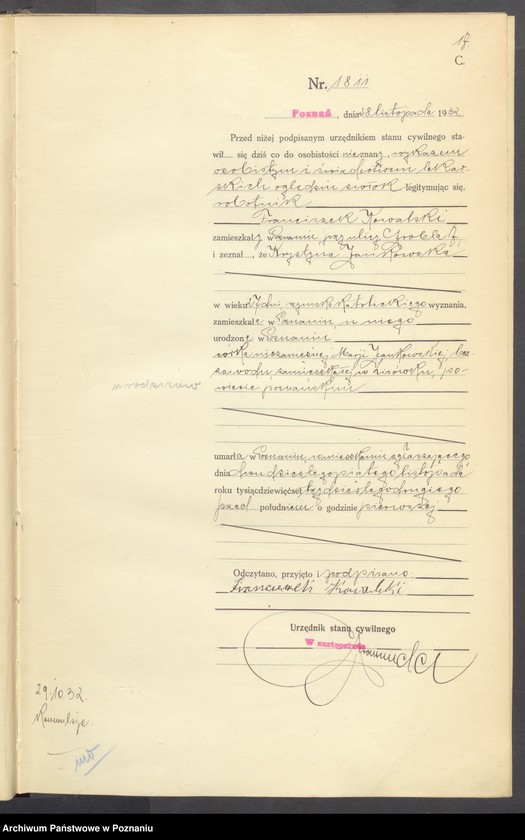 17
C.
Nr. 1811
Poznań, dnia 28 listopada 1932
Przed niżej podpisanym urzędnikiem stanu cywilnego sta-
wił się dziś co do osobistości nieznany, wykazem
osobistym i świadectwem lekar-
skich oględzin zwłok legitymując się,
robotnik
Franciszek Kowalski
zamieszkały w Poznaniu, przy ulicy Grobla 7,
i zeznał, że Krystyna Jankowska
w wieku 17 dni, rzymsko katolickiego wyznania,
zamieszkała w Poznaniu, u niego
urodzona w Poznaniu
córka niezamężnej Marji Jankowskiej, bez
zawodu, zamieszkałej w po-
wiecie poznańskim
umarła w Poznaniu, w mieszkaniu zgłaszającego
dnia dwudziestego piątego listopada
roku tysiąc dziewięćset trzydziestego drugiego
przed południem o godzinie pierwszej
Odczytano, przyjęto i podpisano
Franciszek Kowalski
Urzędnik stanu cywilnego
W zastępstwie
29.10.32.
Archiwum Państwowe w Poznaniu